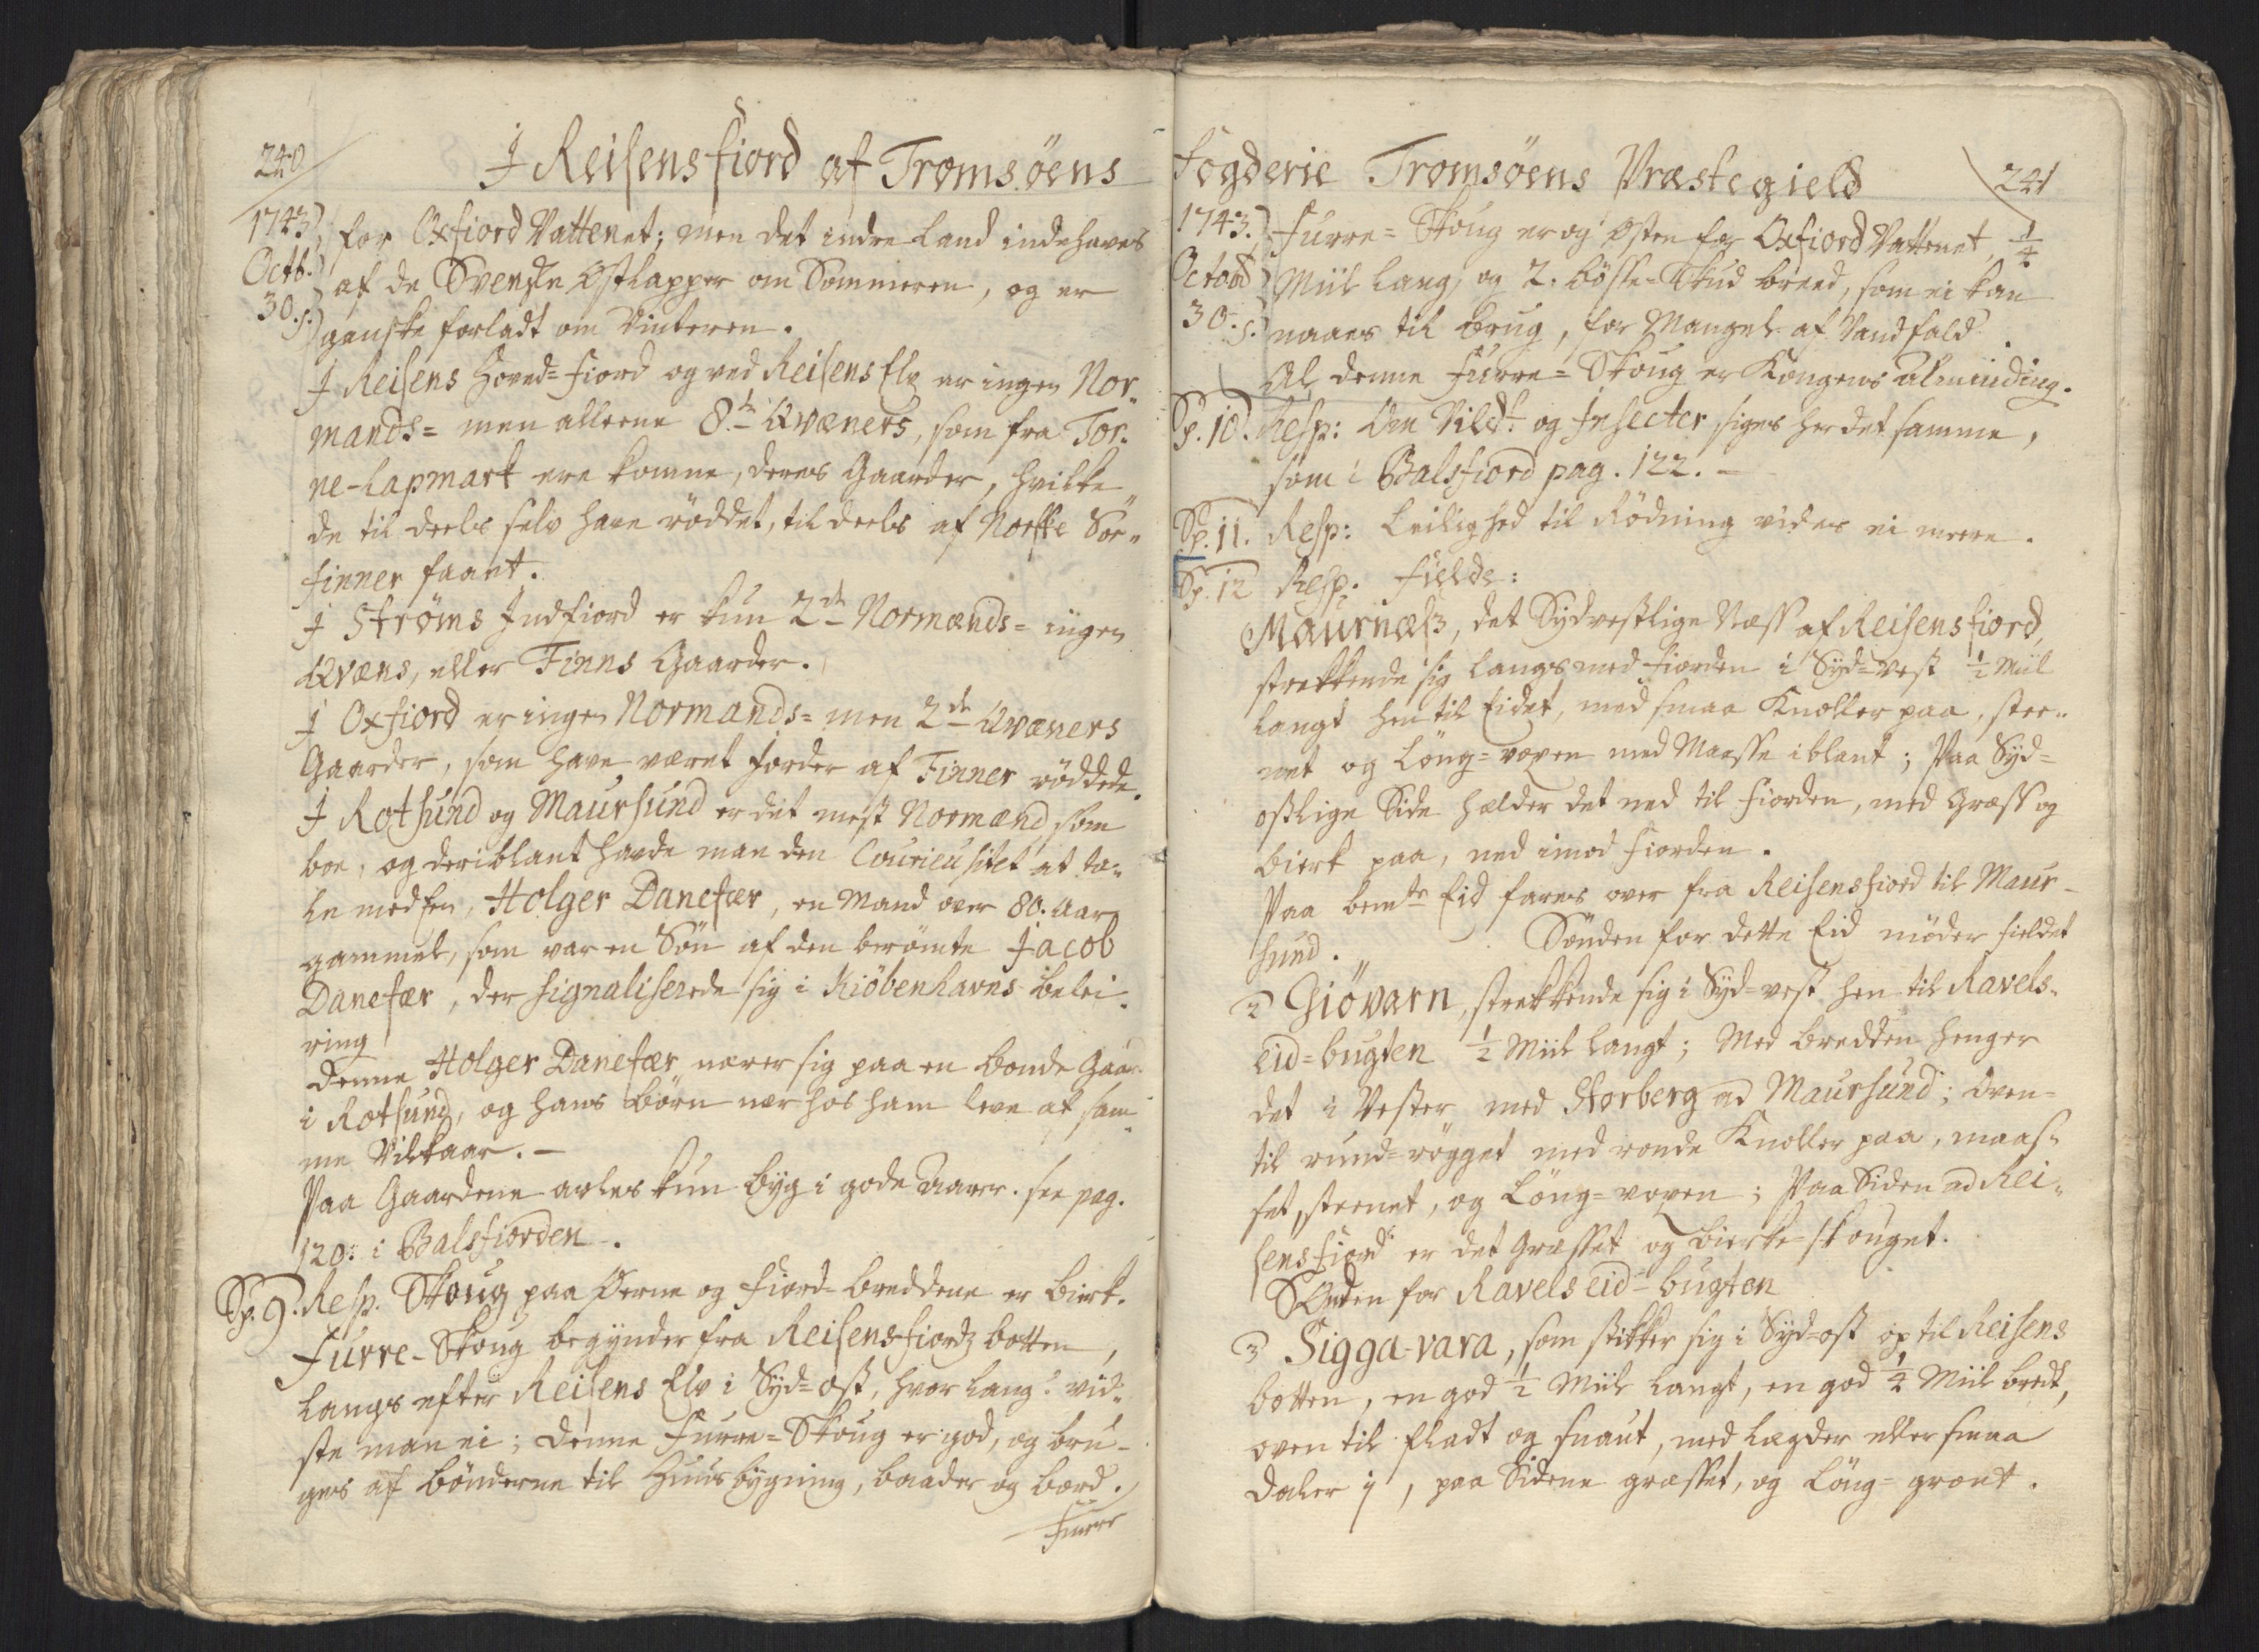 240
J Reisensfiord af Tromsöens
1743
Octb.
30. s.
for Oxfiord Vattenet; men det indre Land indehaves
af de Svenske Östlapper om Sommeren, og er
ganske forladt om Vinteren.
J Reisens Hoved-fiord og ved Reisens Elv er ingen Nor-
mands- men alleene 8te Qvæners, som fra Tor-
ne-Lapmark ere komne, deres Gaarder, hvilke
de til deels selv have röddet, til deels af Norske Söe-
finner faaet.
J Ströms Indfiord er kun 2de Normænds- ingen
Qvæns, eller Finns Gaarder.
J Oxfiord er ingen Normands- men 2de Qvæners
Gaarder, som have været forder af Finner röddede.
J Rotsund og Maursund er det mest Normænd, som
boe, og deriblant havde man den Courieusitet at ta-
le med en, Holger Danefær, en Mand over 80. Aar
gammel, som var en Sön af den berömte Jacob
Danefær, der signaliserede sig i Kiöbenhavns belei-
ring
Denne Holger Danefær nærer sig paa en bonde Gaar
i Rotsund, og hans börn nær hos ham leve af sam-
me Vilkaar. -
Paa Gaardene avles kun byg i gode Aarer. see pag.
120. i Balsfiorden.
Sp. 9. Resp. Skoug paa Öerne og fiord-breddene er birk.
Furre-Skoug begynder fra Reisensfiords botten,
langs efter Reisens Elv i Syd-ost, hvor langt vid-
ste man ei; denne Furre-Skoug er god, og bru-
ges af bönderne til Huusbygning, baader og bord.
Furre
Fogderie Tromsöens Præstegield
241
1743.
Octobr
30. s.
Furre-Skoug er og Østen for Oxfiord Vattenet, 1/4
Miil lang, og 2. bösse-Skud breed, som ei kan
naaes til brug, for Mangel af Vandfald.
Al denne Furre-Skoug er Kongens Alminding.
Sp. 10. Resp: Om Vildt og Insecter siges her det samme,
som i Balsfiord pag. 122. -
Sp. 11. Resp: Leilighed til Rödning vides ei meere.
Sp. 12 Resp. Fielde:
Maurnæss, det Sydvestlige Næss af Reisensfiord,
strekkende sig langs med fiorden i Syd-vest 1/2 Miil
langt hen til Eidet, med smaa Knoller paa, stee-
net og Löng-voxen med Maasse iblant; Paa Syd-
ostlige Side hælder det ned til fiorden, med Græss og
bierk paa, ned imod fiorden.
Paa bemte Eid fares over fra Reisensfiord til Maur-
sund. Sönden for dette Eid möder fieldet
2 Giövarn, strekkende sig i Syd-vest hen til Ravels-
eid-bugten 1/2 Miil langt; Med bredden henger
det i Vester med Storberg ad Maursund; Oven-
til rund-rögget med runde Knoller paa, maas-
set, steenet, og Löng-voxen; Paa Siden ad Rei-
sensfiord er det Græsset og bierke-skouget.
Sönden for Ravelseid-bugten
3 Sigga-vara, som stikker sig i Syd-ost op til Reisens
botten, en god 1/2 Miil langt, en god 1/4 Miil bredt,
oven til fladt og snaut, med Lægder eller smaa
daler i, paa Siderne græsset, og Löng-grønt.